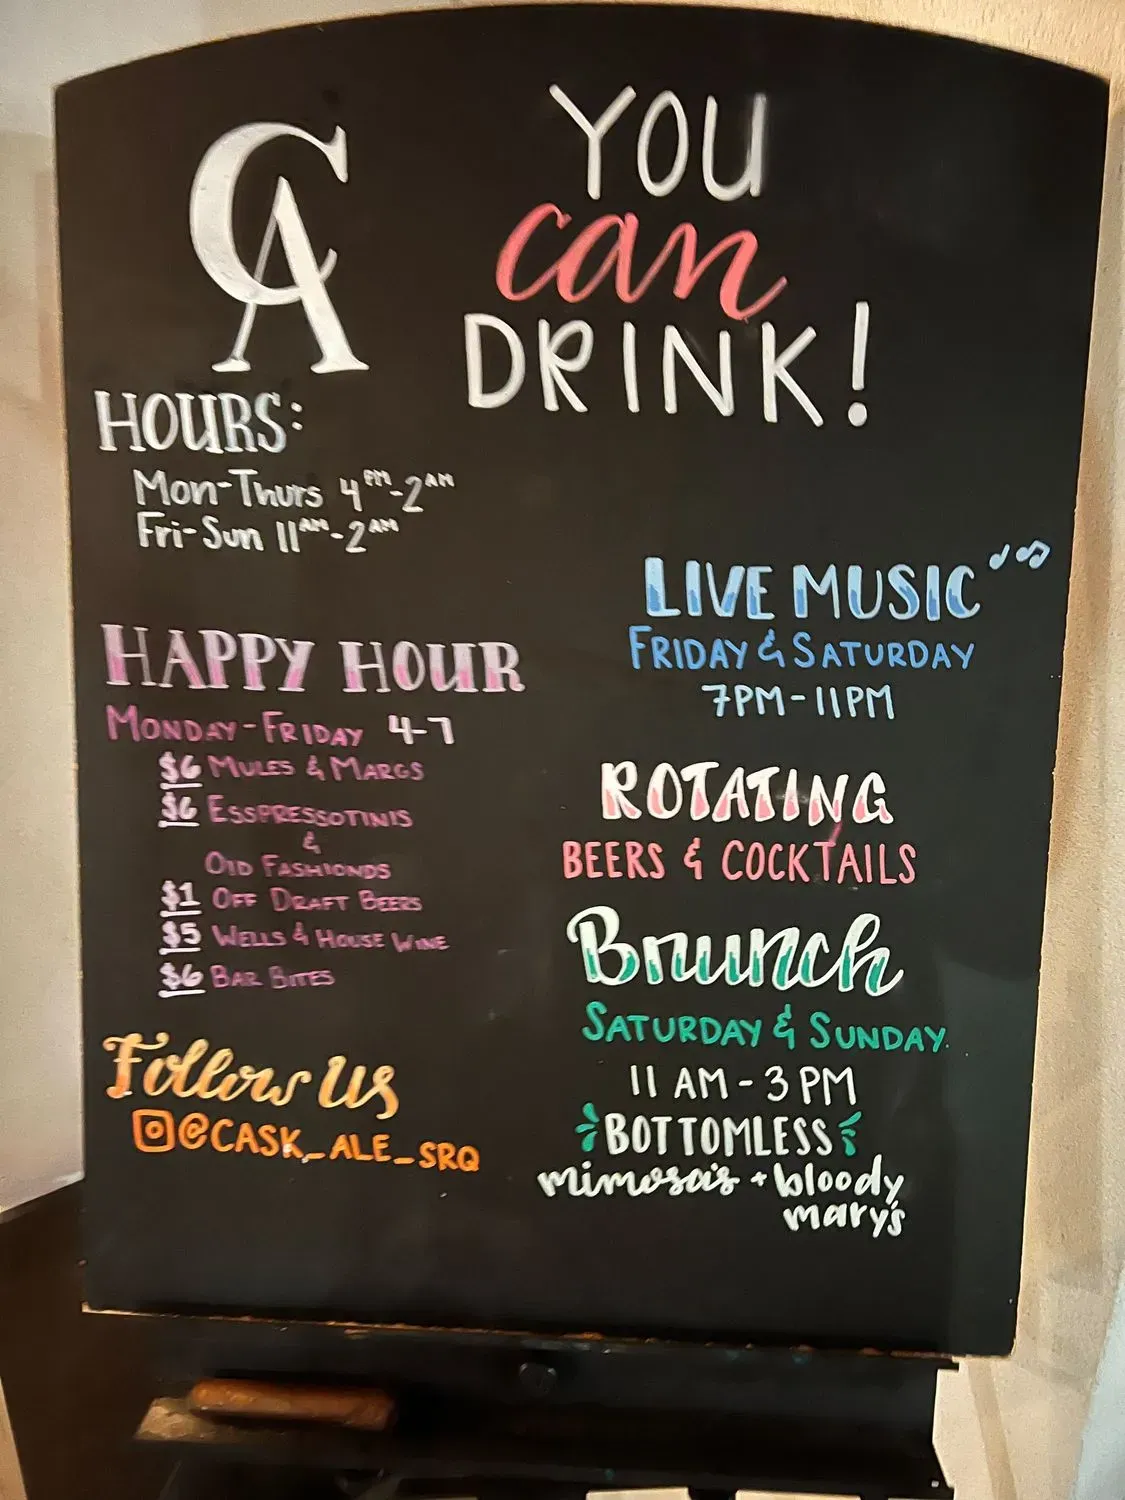 CA
YOU
can
DRINK!
HOURS:
Mon-Thurs 4PM-2AM
Fri-Sun 11AM-2AM
HAPPY HOUR
MONDAY-FRIDAY 4-7
$6 MULES & MARGS
$6 ESSPRESSOTINIS
&
OLD FASHIONDS
$1 OFF DRAFT BEERS
$5 WELLS & HOUSE WINE
$6 BAR BITES
Follow Us
@CASK_ALE_SRQ
LIVE MUSIC
FRIDAY & SATURDAY
7PM-11PM
ROTATING
BEERS & COCKTAILS
Brunch
SATURDAY & SUNDAY.
11 AM - 3 PM
BOTTOMLESS
mimosa's + bloody
mary's